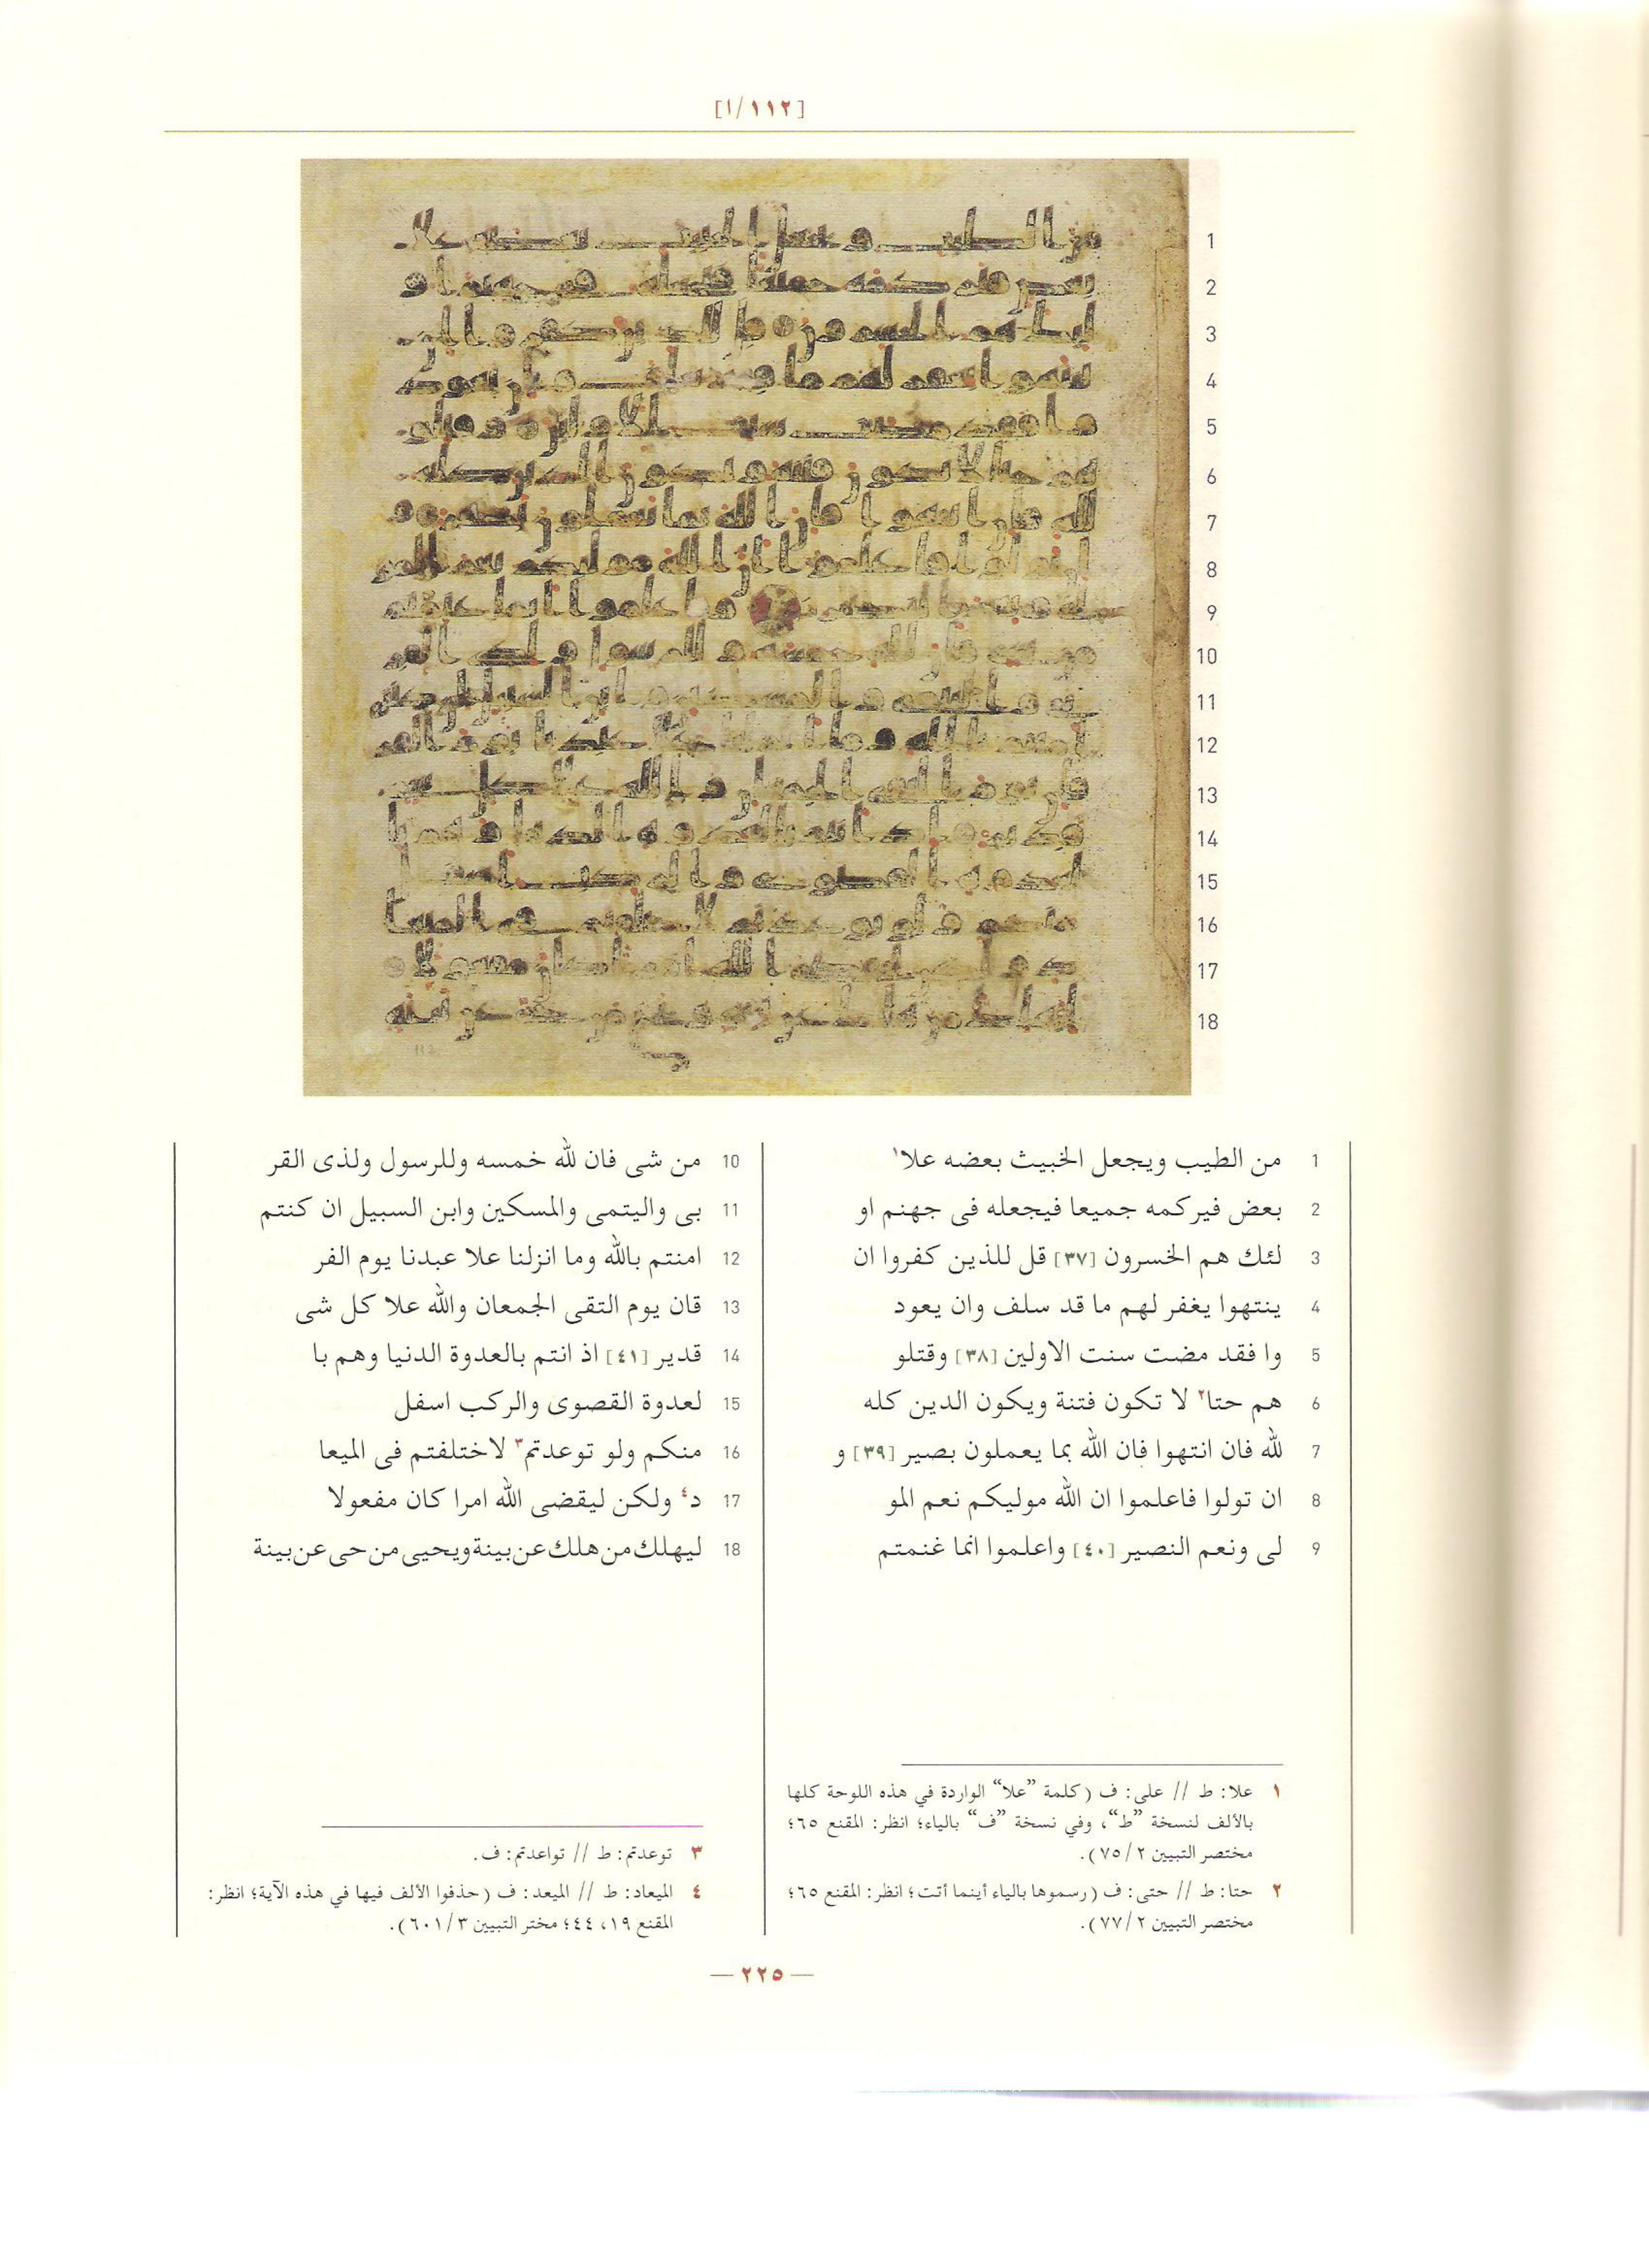 [١١٢/١]
1 من الطيب ويجعل الخبيث بعضه علا١
2 بعض فيركمه جميعا فيجعله فى جهنم او
3 لئك هم الخسرون [٣٧] قل للذين كفروا ان
4 ينتهوا يغفر لهم ما قد سلف وان يعود
5 وا فقد مضت سنت الاولين [٣٨] وقتلو
6 هم حتا٢ لا تكون فتنة ويكون الدين كله
7 لله فان انتهوا فان الله بما يعملون بصير [٣٩] و
8 ان تولوا فاعلموا ان الله موليكم نعم المو
9 لى ونعم النصير [٤٠] واعلموا انما غنمتم
10 من شى فان لله خمسه وللرسول ولذى القر
11 بى واليتمى والمسكين وابن السبيل ان كنتم
12 امنتم بالله وما انزلنا علا عبدنا يوم الفر
13 قان يوم التقى الجمعان والله علا كل شى
14 قدير [٤١] اذ انتم بالعدوة الدنيا وهم با
15 لعدوة القصوى والركب اسفل
16 منكم ولو توعدتم٣ لاختلفتم فى الميعا
17 د٤ ولكن ليقضى الله امرا كان مفعولا
18 ليهلك من هلك عن بينة ويحيى من حى عن بينة
١ علا: ط // على: ف (كلمة ”علا“ الواردة في هذه اللوحة كلها
بالألف لنسخة ”ط“، وفي نسخة ”ف“ بالياء؛ انظر: المقنع ٦٥؛
مختصر التبيين ٧٥/٢).
٢ حتا: ط // حتى: ف (رسموها بالياء أينما أتت؛ انظر: المقنع ٦٥؛
مختصر التبيين ٧٧/٢).
٣ توعدتم: ط // تواعدتم: ف.
٤ الميعاد: ط // الميعد: ف (حذفوا الألف فيها في هذه الآية؛ انظر:
المقنع ١٩، ٤٤؛ مختر التبيين ٦٠١/٣).
— ٢٢٥ —